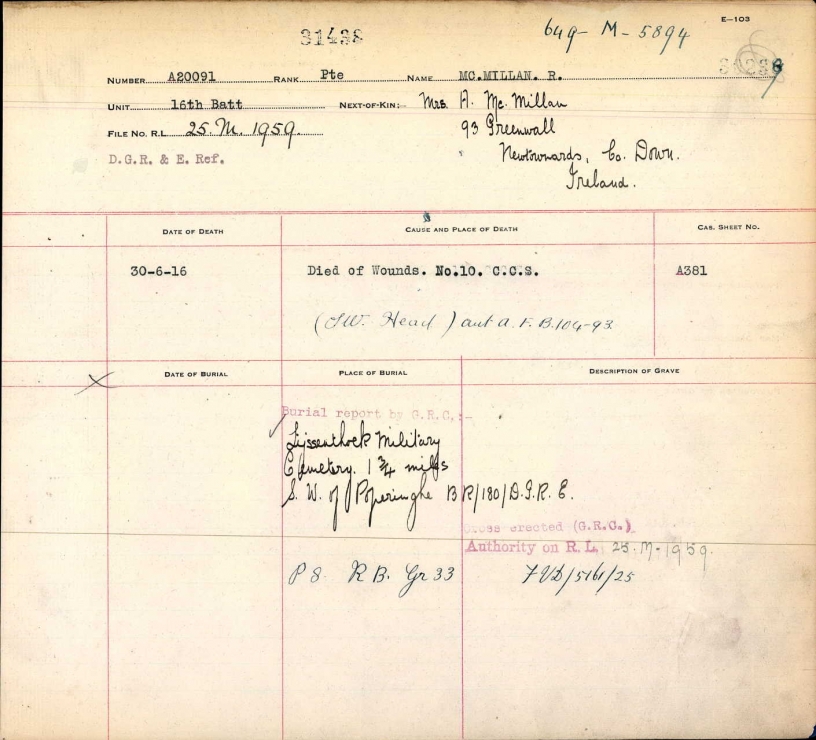 31438
649- M- 5894
E-103
NUMBER A20091 RANK Pte NAME MC.MILLAN. R.
UNIT 16th Batt NEXT-OF-KIN:- Mrs. A. Mc. Millan
FILE NO. R.L. 25. M. 1959.
93 Greenwall
Newtownards, Co. Down.
Ireland.
D.G.R. & E. Ref.
DATE OF DEATH
CAUSE AND PLACE OF DEATH
CAS. SHEET NO.
30-6-16
Died of Wounds. No.10. C.C.S.
A381
Head ) aut a. F. B. 104-93
DATE OF BURIAL
PLACE OF BURIAL
DESCRIPTION OF GRAVE
Burial report by G.R.C. :-
Lijssenthoek Military
Cemetery. 1 3/4 miles
S. W. of Poperinghe BR/180/D.G.R.E.
Cross erected (G.R.C.)
Authority on R. L. 25. M-1959.
P 8. R B. Gr 33